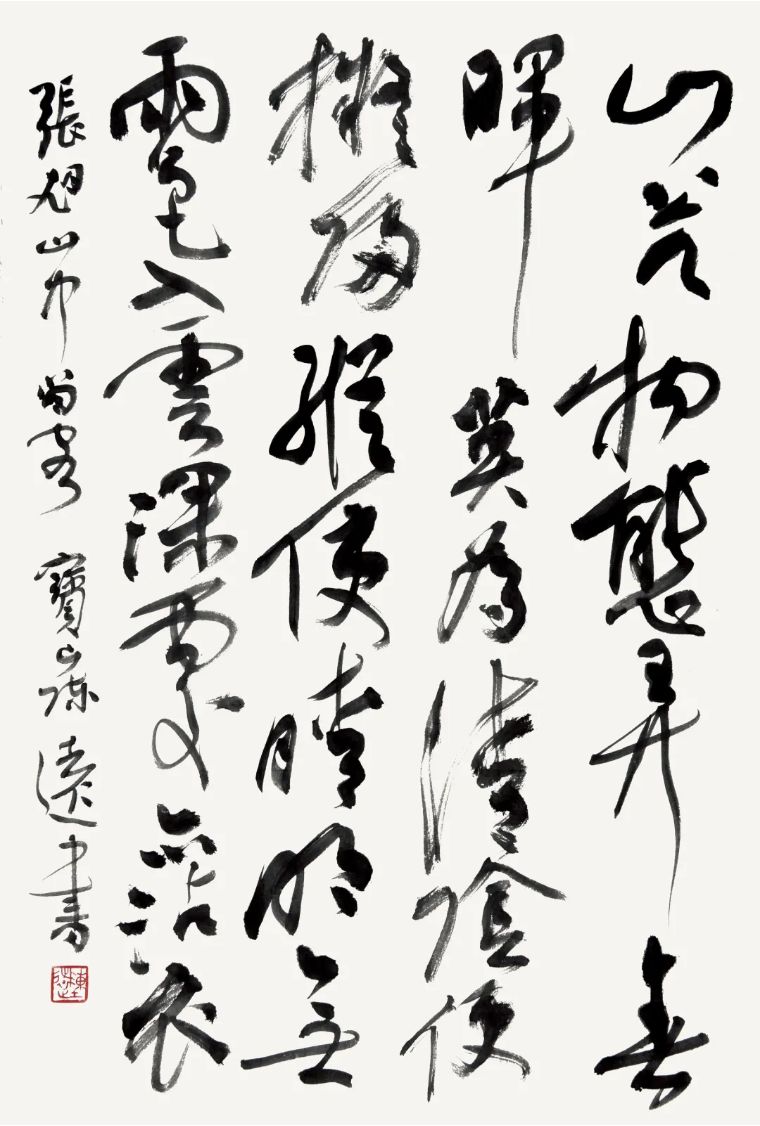 山光物態弄春
暉莫為輕陰便
擬歸縱使晴明無
雨色入雲深處亦沾衣
張旭山中留客 寶山陳書